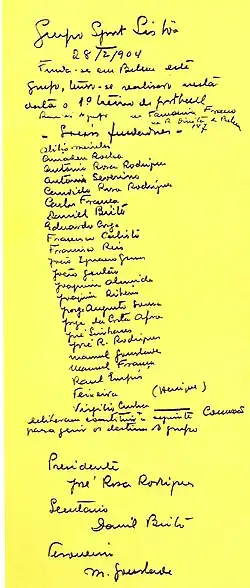 Grupo Sport Lisboa
28/2/904
Funda-se em Belem este
grupo, tendo-se realisado nesta
data o 1º treino de football
grupo na Farmacia Franco
na R. Direita de Belem
147
- Socios fundadores -
Abilio Meirelles
Amadeu Rocha
Antonio Rosa Rodrigues
Antonio Severino
Candido Rosa Rodrigues
Carlos França
Daniel Brito
Eduardo Corga
Francisco Calisto
Francisco Reis
João Ignacio Gomes
João Goulão
Joaquim Almeida
Joaquim Ribeiro
Jorge Augusto Sousa
Jorge da Costa Afra
José Linhares
José R. Rodrigues
Manuel Gourlade
Manuel França
Raul Empis
Teixeira (Henrique)
Virgilio Cunha
deliberam constituir a seguinte Comissão
para gerir os destinos do grupo
Presidente
José Rosa Rodrigues
Secretario
Daniel Brito
Tesoureiro
M. Gourlade